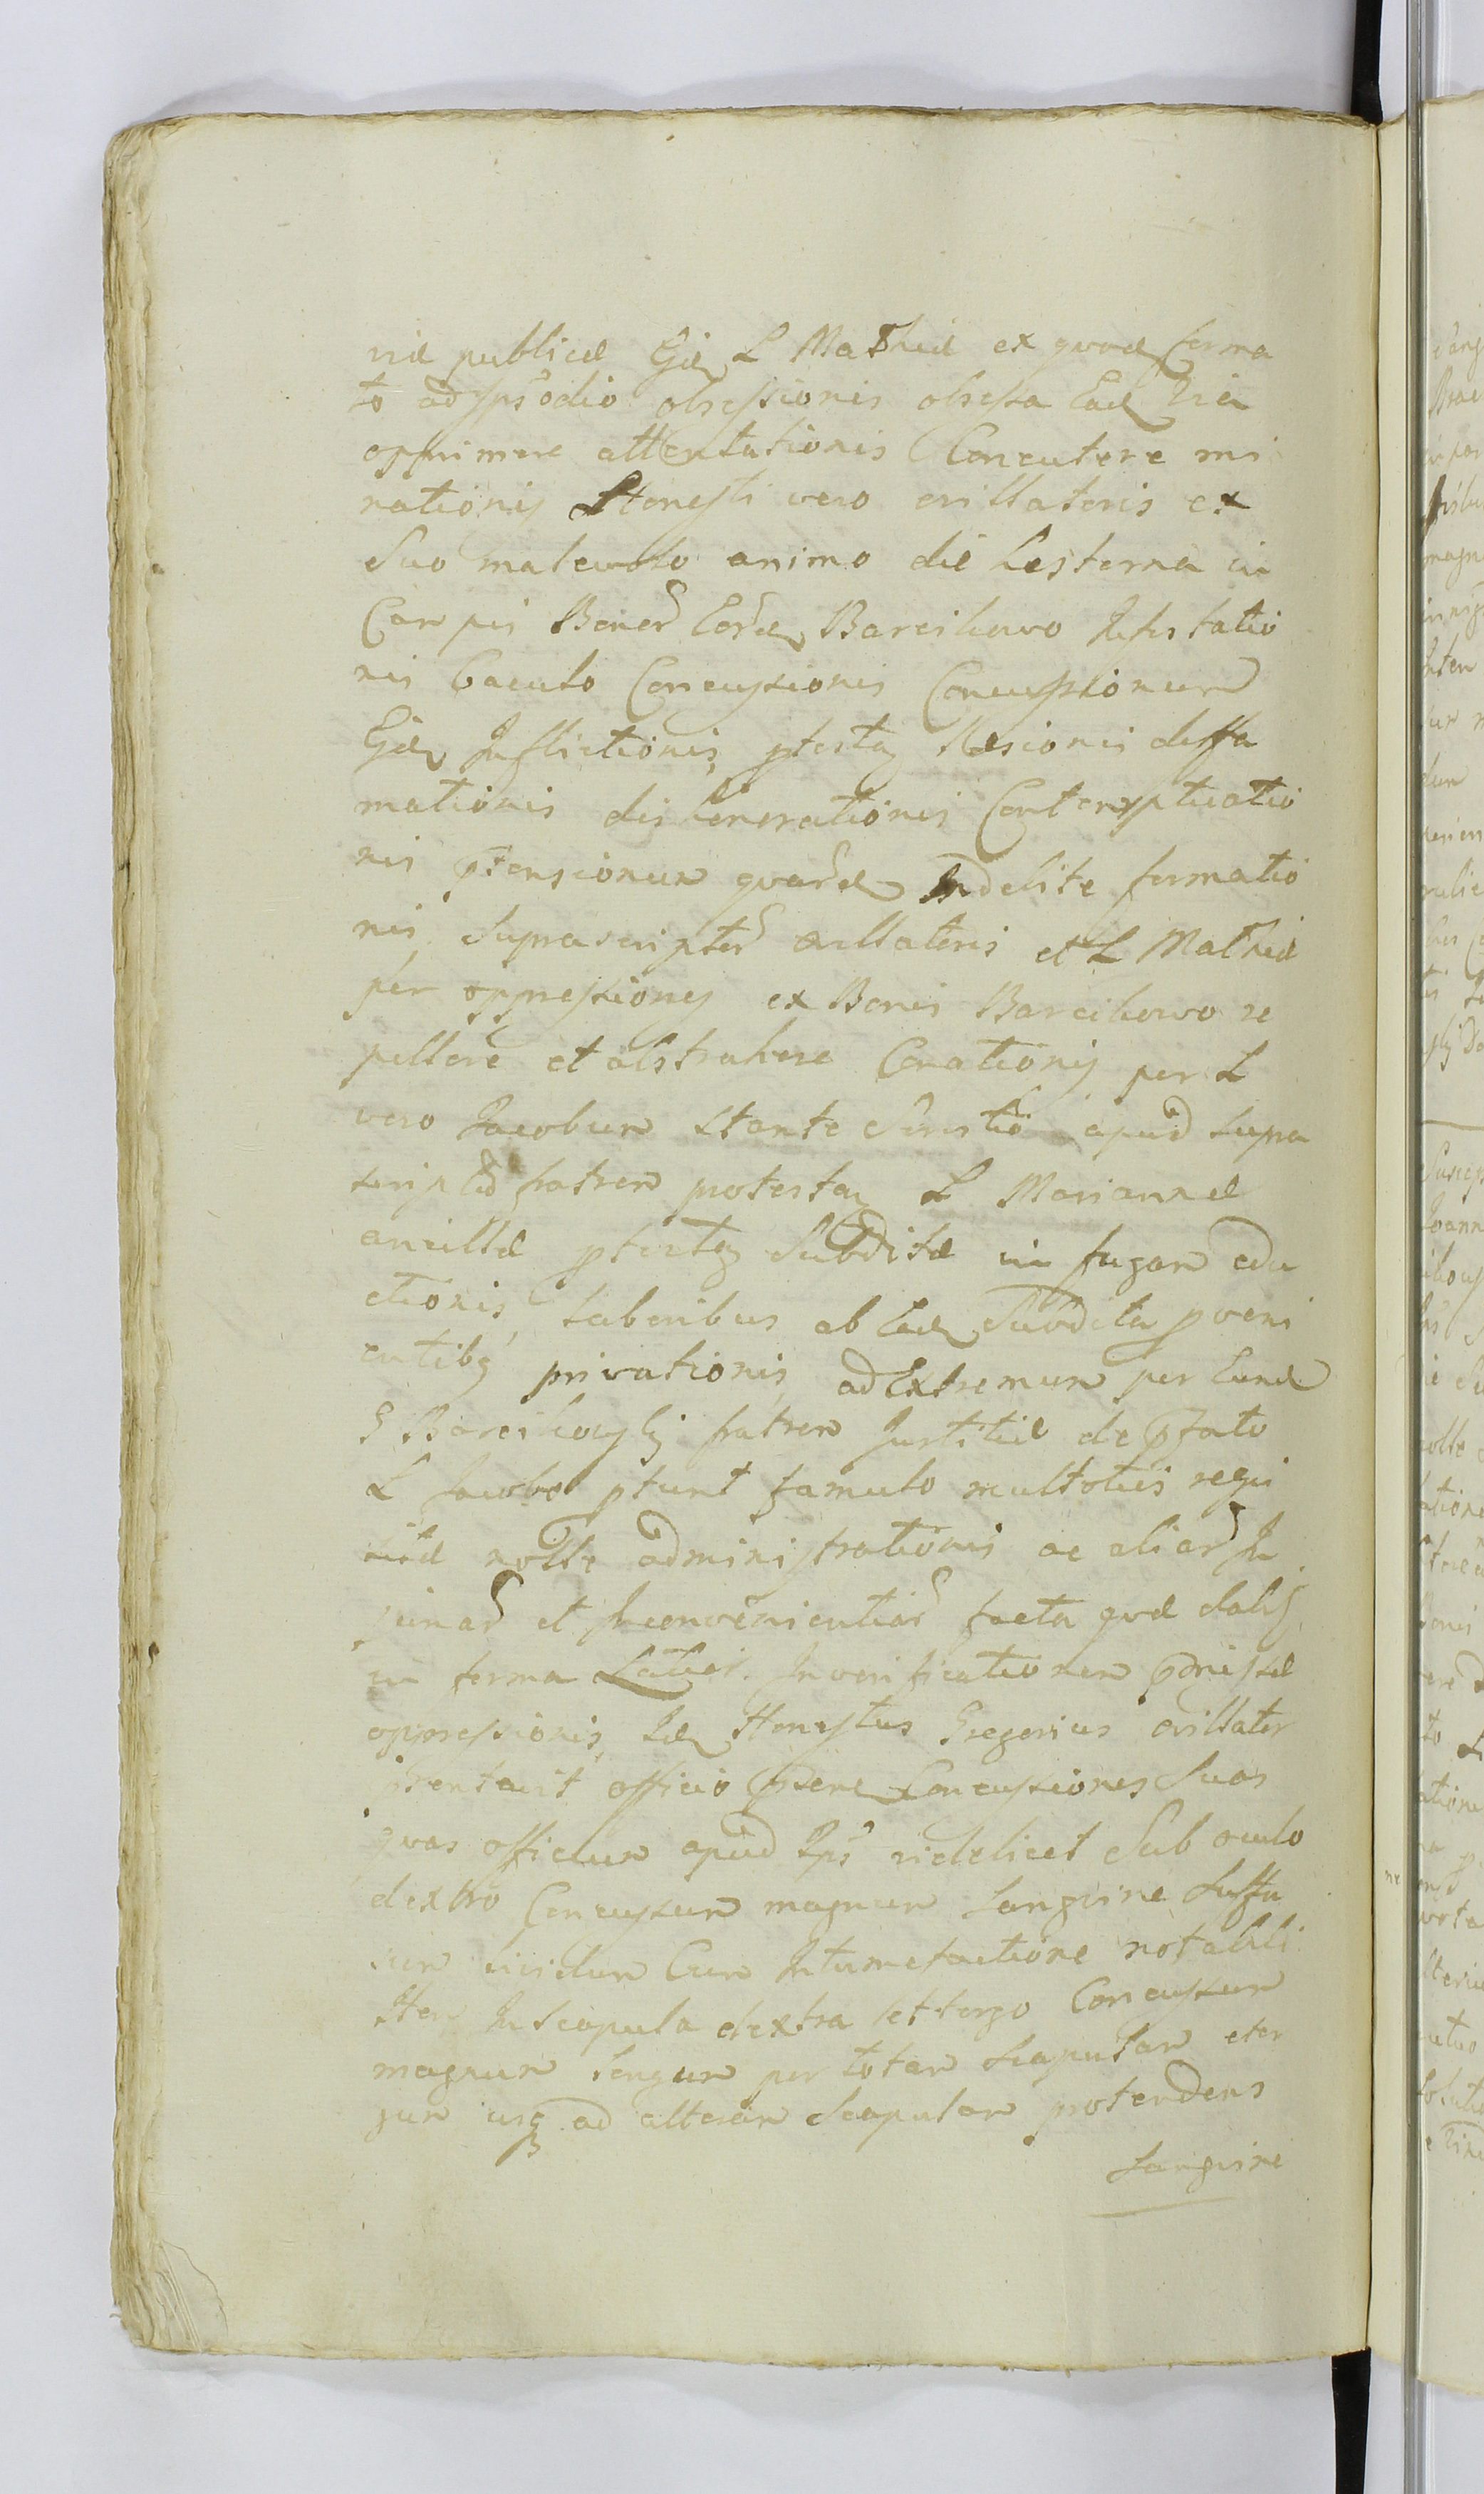 viæ publicæ Ejd L Mathiæ ex quod forma
to ad ips odio obsessionis obsessa Ead Via
opprimere attentationis Concutere mi
nationis Honesti vero ovillatoris ex
Suo malevolo animo die hesterna in
Campis Bonor Eord Barcikowo Infestatio
nis baculo Concussionis Concussionum
Ejd Inflictionis ptestq læsionis deffa
mationis dishonorationis Contemptuatio
nis ptensionum quard Indebite formatio
nis suprascriptor ovillatoris et L Mathiæ
per oppressiones ex Bonis Barcikowo re
pellere et abstrahere Conationis per L
vero Jacobum stante Servitio apud supra
scriptum fratrem protestan L Mariannæ
ancillæ ptestq Subditæ in fugam edu
ctionis, laboribus ab Ead Subdita proveni
entibq privationis, ad Extremum per Eund
G Barcikowski fratrem Justitiæ de pfato
L Jacobo ptunt famulo multoties requi
sitæ nolle administrationis ac aliar In
juriar et Inconvenientiar facta quæ
in forma Latiori. In verificationem præmissæ
oppressionis Id Honestus Gregorius ovillator
præsentavit officio præsenti Concussiones Suas
quas officium apud Ips videlicet Sub oculo
dextro Concussum magnum Sangvine Suffu
sum lividum Cum Intumefactione notabili
Item In scapula dextra et tergo Concussum
magnum longum per totam scapulam et ter
gum usq ad alteram Scapulam protendens
Sangvine